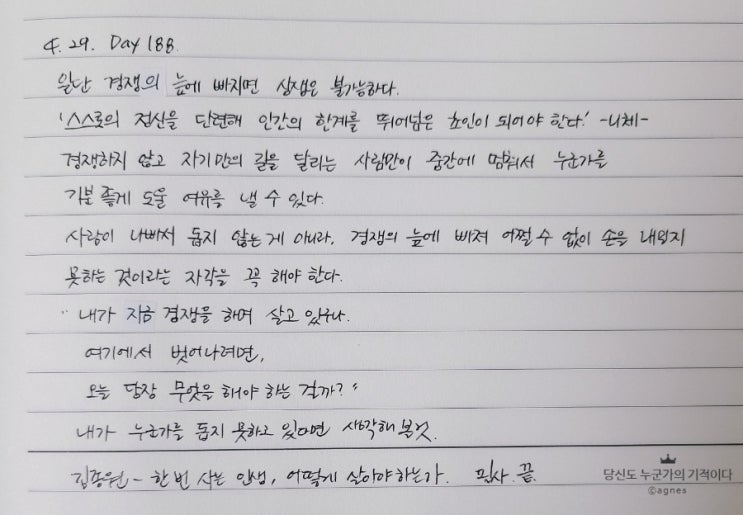 4. 29. Day 188.
일단 경쟁의 늪에 빠지면 상생은 불가능하다.
'스스로의 정신을 단련해 인간의 한계를 뛰어넘은 초인이 되어야 한다.' -니체-
경쟁하지 않고 자기만의 길을 달리는 사람만이 중간에 멈춰서 누군가를
기분 좋게 도울 여유를 낼 수 있다.
사람이 나빠서 돕지 않는 게 아니라, 경쟁의 늪에 빠져 어쩔 수 없이 손을 내밀지
못하는 것이라는 자각을 꼭 해야 한다.
"내가 지금 경쟁을 하며 살고 있구나.
여기에서 벗어나려면,
오늘 당장 무엇을 해야 하는 걸까?"
내가 누군가를 돕지 못하고 있다면 생각해 볼것.
김종원 - 한 번 사는 인생, 어떻게 살아야하는가. 필사. 끝.
당신도 누군가의 기적이다
©agnes